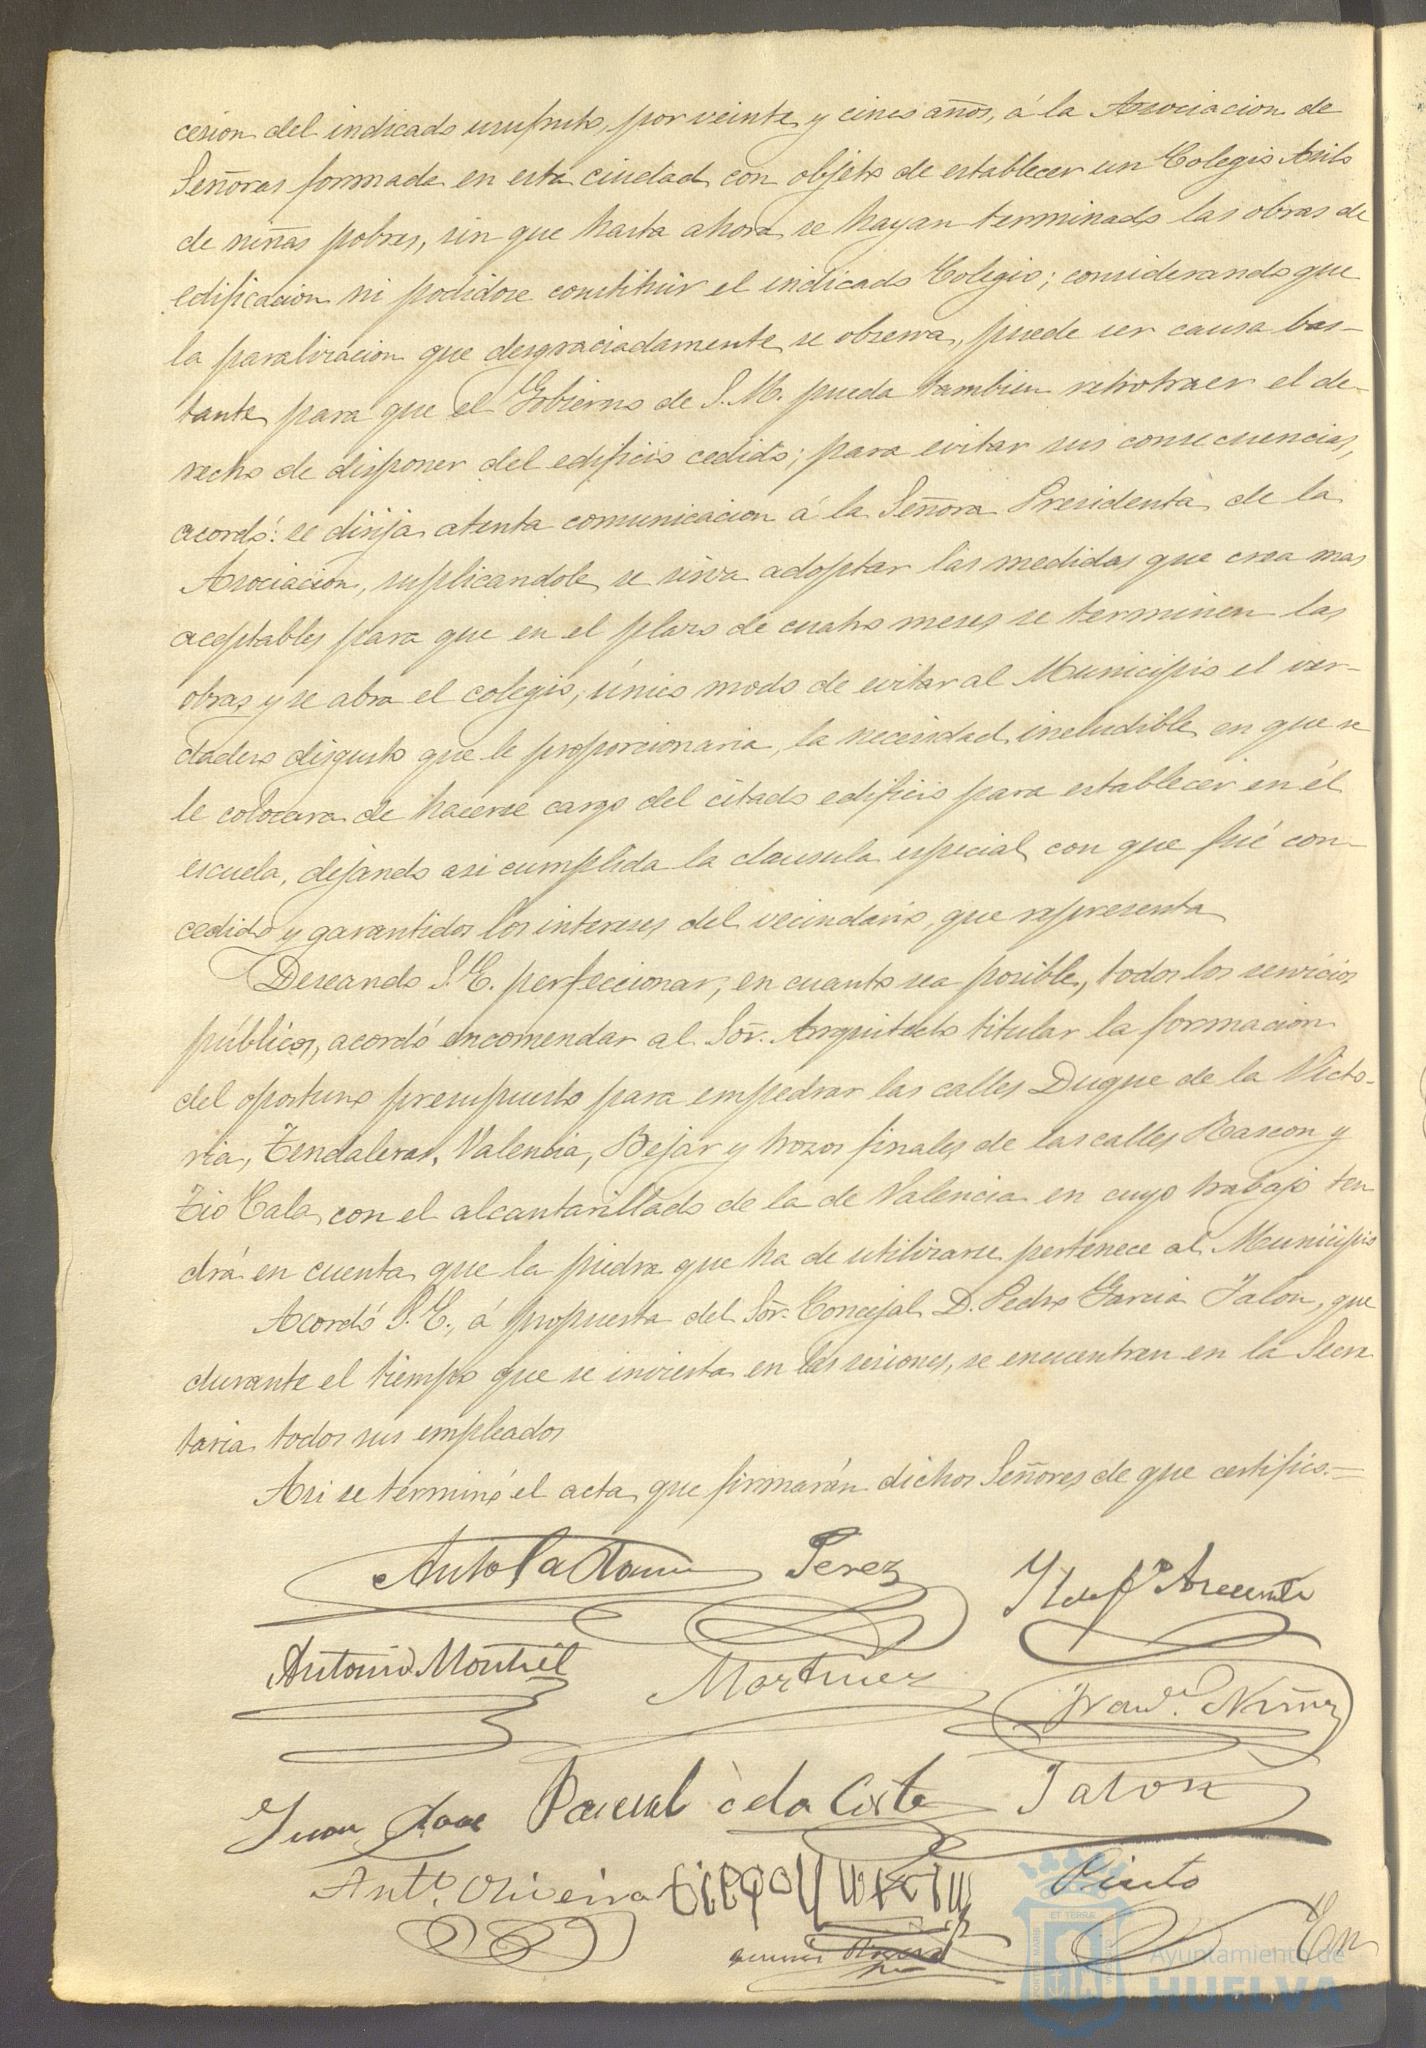 cesion del indicado usufruto, por veinte y cinco años, á la Asociacion de
Señoras formada en esta ciudad con objeto de establecer un Colegio Asilo
de niñas pobres, sin que hasta ahora se hayan terminado las obras de
edificacion ni podidose constituir el indicado Colegio; considerando que
la paralizacion que desgraciadamente se observa, puede ser causa bas-
tante para que el Gobierno de S. M. pueda tambien retrotraer el de-
recho de disponer del edificio cedido; para evitar sus consecuencias,
acordó: se dirija atenta comunicacion á la Señora Presidenta de la
Asociacion, suplicandole se sirva adoptar las medidas que crea mas
aceptables para que en el plazo de cuatro meses se terminen las
obras y se abra el colegio, único modo de evitar al Municipio el ver-
dadero disgusto que le proporcionaria la necesidad ineludible en que se
le colocara de hacerse cargo del citado edificio para establecer en él
escuela, dejando asi cumplida la clausula especial con que fué con-
cedido y garantidos los intereses del vecindario, que representa
Deseando S. E. perfeccionar, en cuanto sea posible, todos los servicios
públicos, acordó encomendar al Sor. Arquitecto titular la formacion
del oportuno presupuesto para empedrar las calles Duque de la Victo-
ria, Tendaleras, Valencia, Bejar y trozos finales de las calles Rascon y
Tio Cala con el alcantarillado de la de Valencia en cuyo trabajo ten
drá en cuenta que la piedra que ha de utilizarse pertenece al Municipio
Acordó S. E., á propuesta del Sor. Concejal D. Pedro Garcia Jalon, que
durante el tiempo que se invierta en las sesiones, se encuentren en la Secre
taria todos sus empleados
Asi se terminó el acta que firmarán dichos Señores de que certifico.=
Perez
Antonio Montiel Martinez Franco. Nuñez
Juan Jose Pascual de la Corte Jalon
Anto. Oliveira Pinto
En
Ayuntamiento de
HUELVA